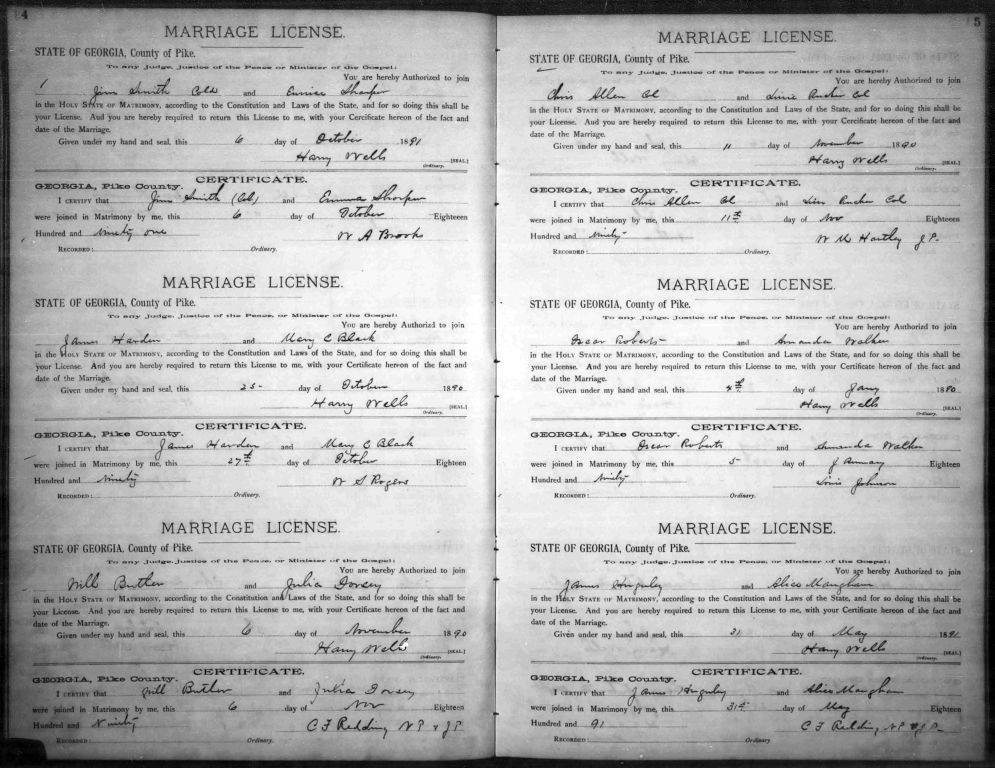 4
MARRIAGE LICENSE.
STATE OF GEORGIA, County of Pike.
To any Judge, Justice of the Peace or Minister of the Gospel:
You are hereby Authorized to join
Jim Smith Cold and Eunice Sharper
in the HOLY STATE OF MATRIMONY, according to the Constitution and Laws of the State, and for so doing this shall be
your License. And you are hereby required to return this License to me, with your Cercificate hereon of the fact and
date of the Marriage.
Given under my hand and seal, this 6 day of October 1891
Harry Wells [SEAL]
Ordinary.
CERTIFICATE.
GEORGIA, Pike County.
I CERTIFY that Jim Smith (Col) and Emma Sharper
were joined in Matrimony by me, this 6 day of October Eighteen
Hundred and ninety one W A Brooks
RECORDED: Ordinary.
MARRIAGE LICENSE.
STATE OF GEORGIA, County of Pike.
To any Judge, Justice of the Peace, or Minister of the Gospel:
You are hereby Authorized to join
James Harden and Mary C Black
in the HOLY STATE OF MATRIMONY, according to the Constitution and Laws of the State, and for so doing this shall be
your License. And you are hereby required to return this License to me, with your Certificate hereon of the fact and
date of the Marriage.
Given under my hand and seal, this 25 day of October 1890
Harry Wells [SEAL.]
Ordinary.
CERTIFICATE.
GEORGIA, Pike County.
I CERTIFY that James Harden and Mary C Black
were joined in Matrimony by me, this 27th day of October Eighteen
Hundred and ninety W S Rogers
RECORDED: Ordinary.
MARRIAGE LICENSE.
STATE OF GEORGIA, County of Pike.
To any Judge, Justice of the Peace, or Minister of the Gospel:
You are hereby Authorized to join
Will Buther and Julia Dorsey
in the HOLY STATE OF MATRIMONY, according to the Constitution and Laws of the State, and for so doing this shall be
your License. And you are hereby required to return this License to me, with your Certificate hereon of the fact and
date of the Marriage.
Given under my hand and seal, this 6 day of November 1890
Harry Wells [SEAL.]
Ordinary.
CERTIFICATE.
GEORGIA, Pike County.
I CERTIFY that Will Buther and Julia Dorsey
were joined in Matrimony by me, this 6 day of Nov Eighteen
Hundred and Ninety C F Redding N P & J P
RECORDED: Ordinary.
5
MARRIAGE LICENSE.
STATE OF GEORGIA, County of Pike.
To any Judge, Justice of the Peace or Minister of the Gospel:
You are hereby Authorized to join
Chris Allen Col and Rucker Col
in the HOLY STATE OF MATRIMONY, according to the Constitution and Laws of the State, and for so doing this shall be
your License. And you are hereby required to return this License to me, with your Cercificate hereon of the fact and
date of the Marriage.
Given under my hand and seal, this 11 day of November 1890
Harry Wells [SEAL]
Ordinary.
CERTIFICATE.
GEORGIA, Pike County.
I CERTIFY that Chris Allen Col and Rucker Col
were joined in Matrimony by me, this 11th day of Nov Eighteen
Hundred and Ninety W M Hartley J P.
RECORDED: Ordinary.
MARRIAGE LICENSE.
STATE OF GEORGIA, County of Pike.
To any Judge, Justice of the Peace, or Minister of the Gospel:
You are hereby Authorized to join
Oscar Roberts and Amanda Walker
in the HOLY STATE OF MATRIMONY, according to the Constitution and Laws of the State, and for so doing this shall be
your License. And you are hereby required to return this License to me, with your Certificate hereon of the fact and
date of the Marriage.
Given under my hand and seal, this 4th day of Jany 1890
Harry Wells [SEAL.]
Ordinary.
CERTIFICATE.
GEORGIA, Pike County.
I CERTIFY that Oscar Roberts and Amanda Walker
were joined in Matrimony by me, this 5 day of January Eighteen
Hundred and Ninety Johnson
RECORDED: Ordinary.
MARRIAGE LICENSE.
STATE OF GEORGIA, County of Pike.
To any Judge, Justice of the Peace, or Minister of the Gospel:
You are hereby Authorized to join
James Huguley and Alice Maugham
in the HOLY STATE OF MATRIMONY, according to the Constitution and Laws of the State, and for so doing this shall be
your License. And you are hereby required to return this License to me, with your Certificate hereon of the fact and
date of the Marriage.
Given under my hand and seal, this 31 day of May 1891
Harry Wells [SEAL.]
Ordinary.
CERTIFICATE.
GEORGIA, Pike County.
I CERTIFY that James Huguley and Alice Maugham
were joined in Matrimony by me, this 31st day of May Eighteen
Hundred and 91 C F Redding, N P & J P
RECORDED: Ordinary